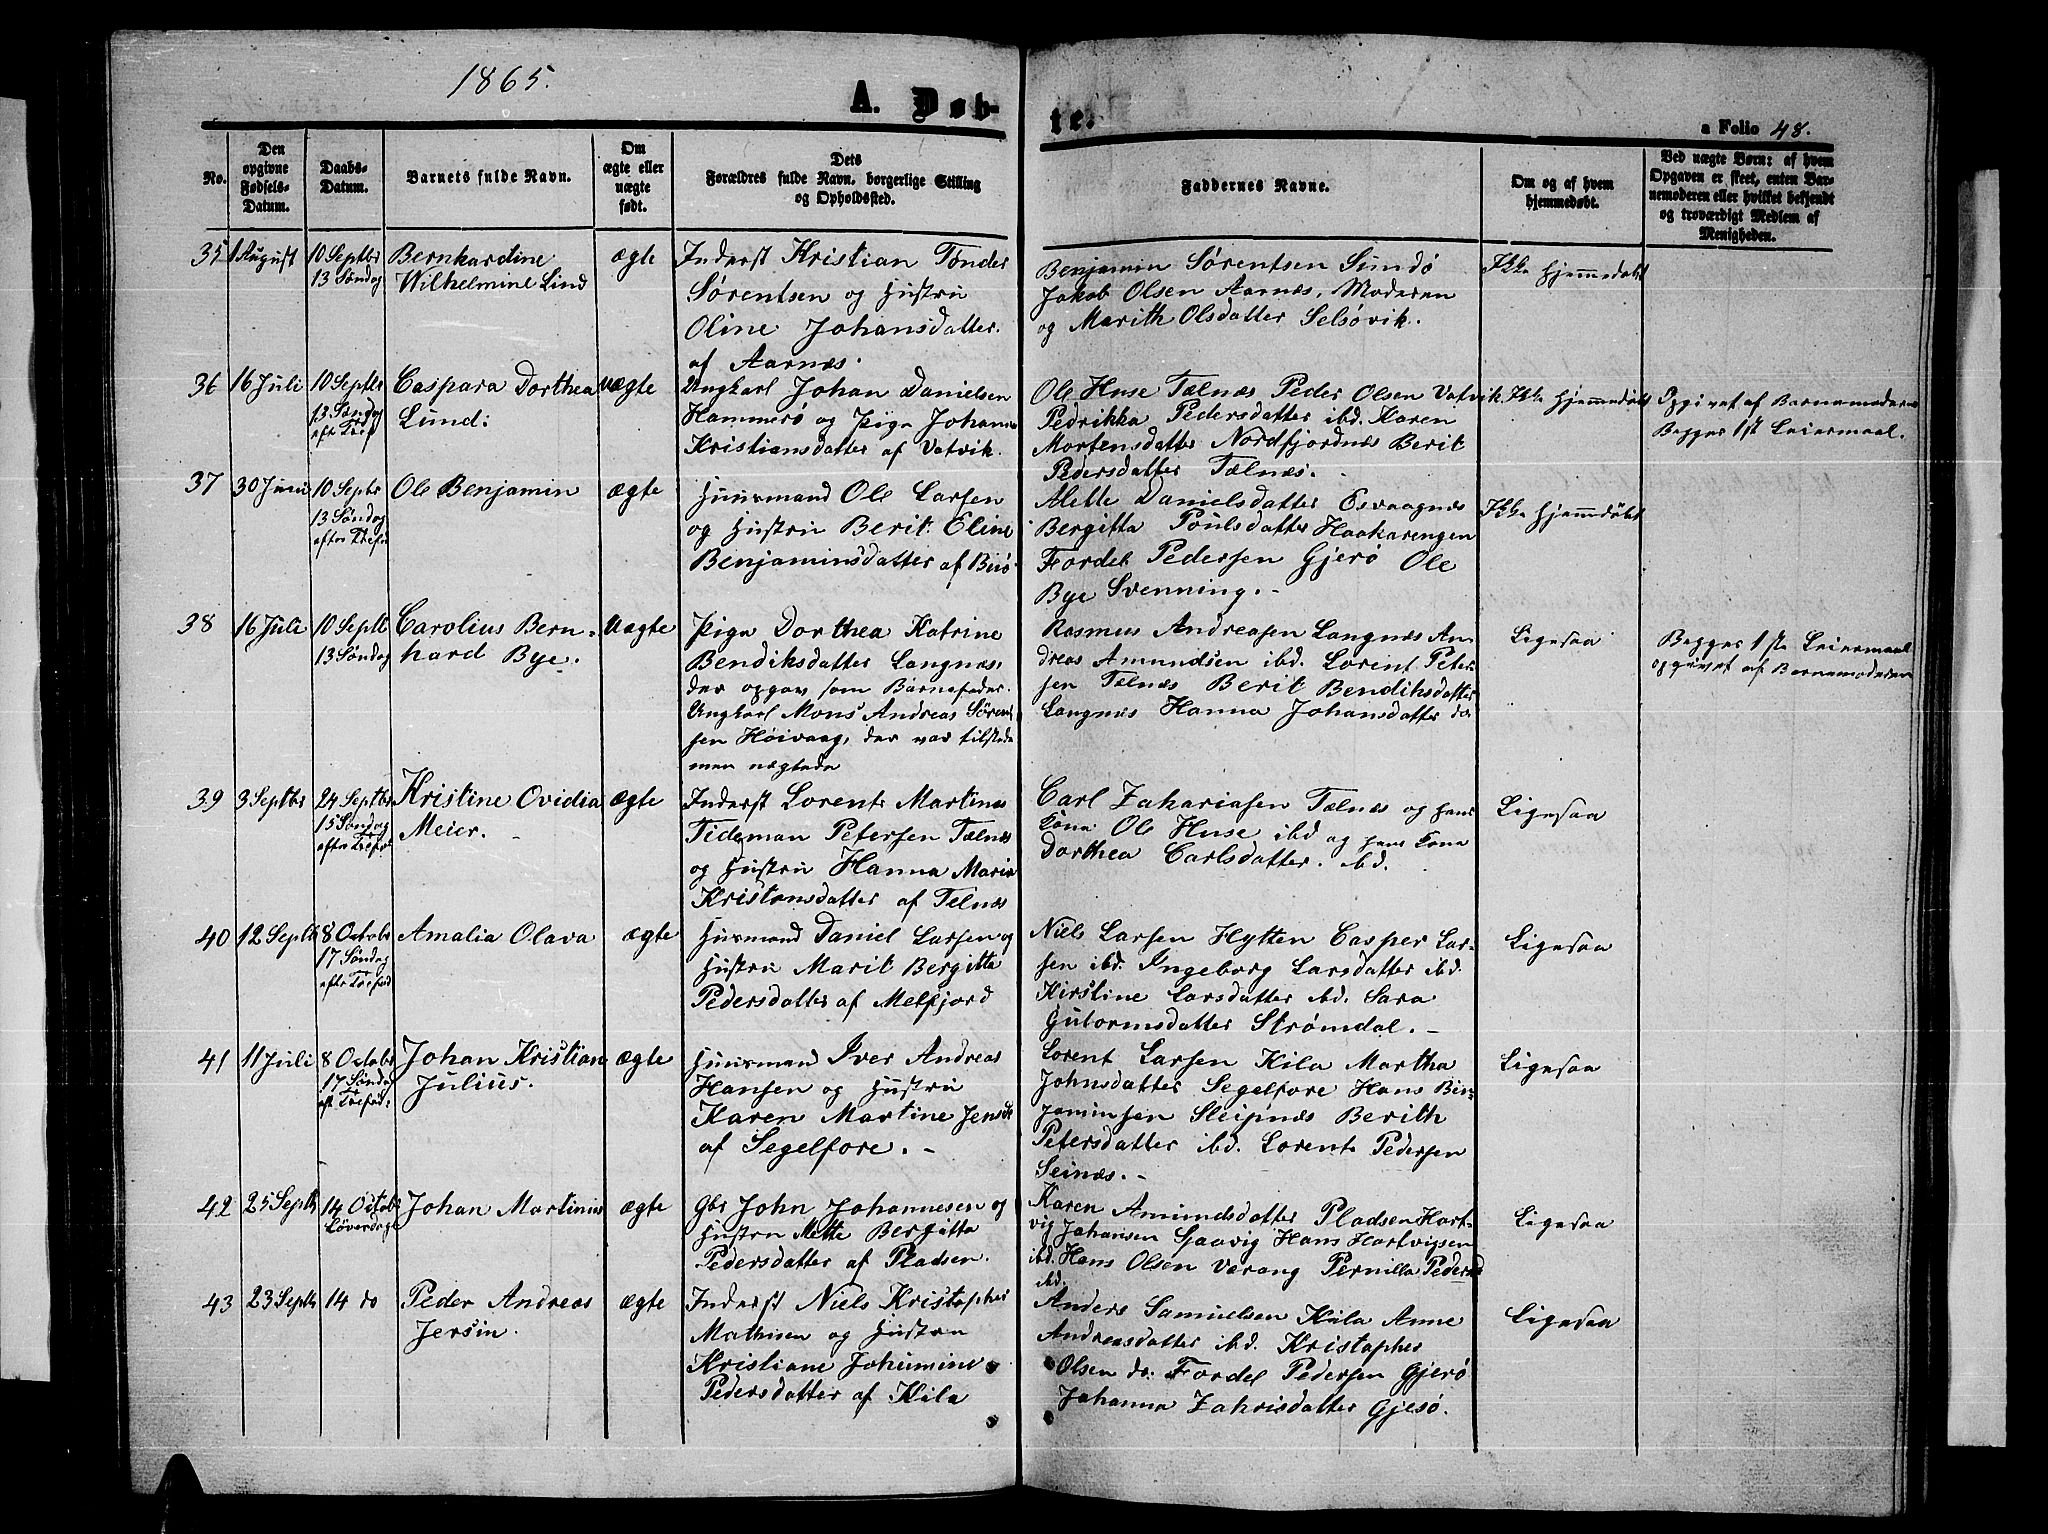 1865.
A. Døb-
te.
a Folio 48.
No.
Den
opgivne
Fødsels-
Datum.
Daabs-
Datum.
Barnets fulde Navn.
Om
ægte eller
uægte
født.
Dets
Forældres fulde Navn, borgerlige Stilling
og Opholdssted.
Faddernes Navne.
Om og af hvem
hjemmedøbt.
Ved uægte Børn: af hvem
Opgaven er skeet, enten Bar-
nemoderen eller hvilket bekjendt
og troværdigt Medlem af
Menigheden.
35
1 August
10 Septbr
13 Søndag
Bernhardine
Wilhelmine Lind
ægte
Inderst Kristian Tønder
Sørentsen og Hustru
Oline Johansdatter
af Aarnæs.
Benjamin Sørentsen Sundø
Jakob Olsen Aarnæs, Moderen
og Marith Olsdatter Selsøvik.
Ikke Hjemmedøbt
36
16 Juli
10 Septbr
13 Søndag
eft Tref
Caspara Dorthea
Lund:
uægte
Ungkarl Johan Danielsen
Hammerø og Pige Johanna
Kristiansdatter af Vatvik.
Ole Huse Tælnæs Peder Olsen Vatvik.
Pedrikka Pedersdatter ibd. Karen
Mortensdatter Nordfjordnæs Berit
Pedersdatter Tælnæs.
Ikke Hjemmedøbt
Opgivet af Barnemoderen
Begges 1st Leiermaal.
37
30 Juni
10 Septbr
13 Søndag
efter Trefo
Ole Benjamin
ægte
Huusmand Ole Larsen
og Hustru Berit Eline
Benjaminsdatter af Berø
Alette Danielsdatter Esvaagnæs
Bergitta Poulsdatter Haakarengen
Fordel Pedersen Gjerø Ole
Bye Svenning. -
Ikke Hjemdøbt
38
16 Juli
10 Septb
13 Søndag
Carolius Bern-
hard Bye.
Uægte
Pige Dorthea Katrine
Bendiksdatter Langnæs,
der opgav som Barnefader.
Ungkarl Mons Andreas Søren
sen Høivaag, der var tilstede
men nægtede
Rasmus Andreasen Langnæs An-
dreas Amundsen ibd. Lorent Peter-
sen Tælnæs Berit Bendiksdatter
Langnæs Hanna Johansdatter do
Ligesaa
Begges 1ste Leiermaal
opgivet af Barnemoderen
39
3 Septbr
24 Septbr
15 Søndag
efter Trefol
Kristine Ovidia
Meier. -
ægte
Inderst Lorents Martinus
Tideman Petersen Tælnæs
og Hustru Hanna Maria
Kristensdatter af Telnæs
Carl Zakariasen Tælnæs og hans
Kone Ole Huse ibd og hans Kone
Dorthea Carlsdatter. ibd.
Ligesaa
40
12 Septb
8 Octobr
17 Søndag
efter Trefold
Amalia Olava
ægte
Husmand Daniel Larsen og
Hustru Marit Bergitta
Pedersdatter af Melfjord
Niels Larsen Hytten Casper Lar-
sen ibd. Ingeborg Larsdatter ibd.
Kirstine Larsdatter ibd. Sara
Gutormsdatter Strømdal. -
Ligesaa
41
11 Juli
8 Octobr
17 Søndag
eft Trefold:
Johan Kristian
Julius.
ægte
Huusmand Iver Andreas
Hansen og Hustru
Karen Martine Jensd
af Segelfore. -
Lorent Larsen Kila Martha
Johnsdatter Segelfore Hans Ben-
jaminsen Sleipnæs Berith
Petersdatter ibd. Lorents Pedersen
Seinæs. -
Ligesaa
42
25 Septb
14 Octobr
Løverdage
Johan Martinius
ægte
Gbr John Johannesen og
Hustru Mette Bergitta
Pedersdatter af Pladsen.
Karen Amundsdatter Pladsen Hart-
vig Johansen Gaavig Hans Hartvigsen
ibd. Hans Olsen Værang Pernilla Pedersd
ibd.
Ligesaa
43
23 Septb
14 do
Peder Andreas
Jersin.
ægte
Inderst Niels Kristopher
Mathisen og Hustru
Kristiane Johumine
Pedersdatter af Kila
Anders Samuelsen Kila Anne
Andreasdatter ibd. Kristopher
Olsen do: Fordel Pedersen Gjerø
Johanna Zahrisdatter Gjesø.
Ligesaa